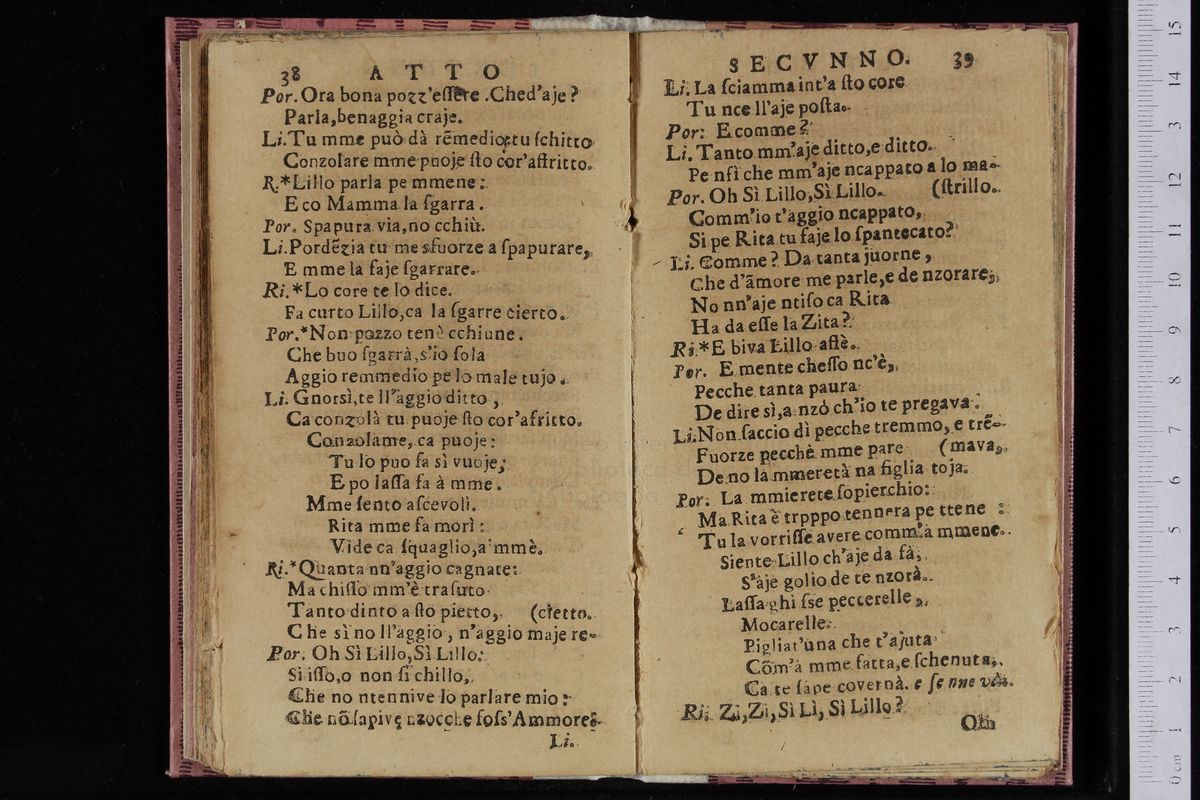 38 ATTO
Por. Ora bona pozz'eſſere .Ched'aje?
Parla,benaggia craje.
Li.Tu mme può dà rẽmedio,tu ſchitto
Conzolare mme puoje ſto cor'aſtritto.
R.*Lillo parla pe mmene:
E co Mamma la ſgarra.
Por. Spapura via,no cchiù.
Li.Pordẽzia tu me sfuorze a ſpapurare,
E mme la faje ſgarrare.
Ri.*Lo core te lo dice.
Fa curto Lillo,ca la ſgarre cierto.
Por.*Non pozzo tenè cchiune.
Che buo ſgarrà,s'io ſola
Aggio remmedio pe lo male tujo.
Li. Gnorsì,te ll'aggio ditto,
Ca conzolà tu puoje ſto cor'afritto.
Conzolame, ca puoje:
Tu lo puo fa sì vuoje;
E po laſſa fa à mme.
Mme ſento aſcevolì.
Rita mme fa morì:
Vide ca ſquaglio,a'mmè.
Ri.*Quanta nn'aggio cagnate:
Ma chiſſo mm'è traſuto
Tanto dinto a ſto pietto, (cietto.
Che sì no ll'aggio, n'aggio maje re-
Por. Oh Sì Lillo,Sì Lillo:
Si iſſo,o non ſi chillo,
Che no ntennive lo parlare mio:
Che nõ ſapive nzocche foſs'Ammore?
Li.
SECVNNO. 39
Li. La ſciamma int'a ſto core
Tu nce ll'aje poſta.
Por: E comme?
Li. Tanto mm'aje ditto,e ditto.
Pe nſì che mm'aje ncappato a lo ma-
Por. Oh Sì Lillo,Sì Lillo. (ſtrillo.
Comm'io t'aggio ncappato,
Si pe Rita tu faje lo ſpantecato?
Li. Comme? Da tanta juorne,
Che d'ãmore me parle,e de nzorare,
No nn'aje ntiſo ca Rita
Ha da eſſe la Zita?
Ri.*E biva Lillo aſſè.
Por. E mente cheſſo nc'è,
Pecche tanta paura
De dire sì,a nzò ch'io te pregava:
Li.Non ſaccio dì pecche tremmo, e trẽ-
Fuorze pecchè mme pare (mava,
De no la mmeretà na figlia toja.
Por. La mmierete ſopierchio:
Ma Rita è trpppo tennera pe ttene:
Tu la vorriſſe avere comm'a mmene.
Siente Lillo ch'aje da fà,
S'aje golio de te nzorà.
Laſſa ghì ſse peccerelle,
Mocarelle.
Pigliat'una che t'ajuta
Cõm'à mme fatta,e ſchenuta,
Ca te ſape covernà. e ſe nne và.
Ri. Zi,Zi,Sì Lì, Sì Lillo?
Oh